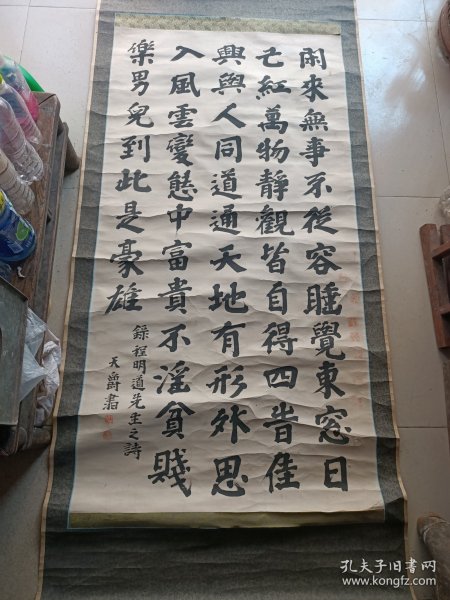 閑來無事不從容睡覺東窓日
已紅萬物靜觀皆自得四旹佳
興與人同道通天地有形外思
入風雲變態中富貴不淫貧賤
樂男兒到此是豪雄
錄程明道先生之詩
天爵書
孔夫子旧书网
www.kongfz.com